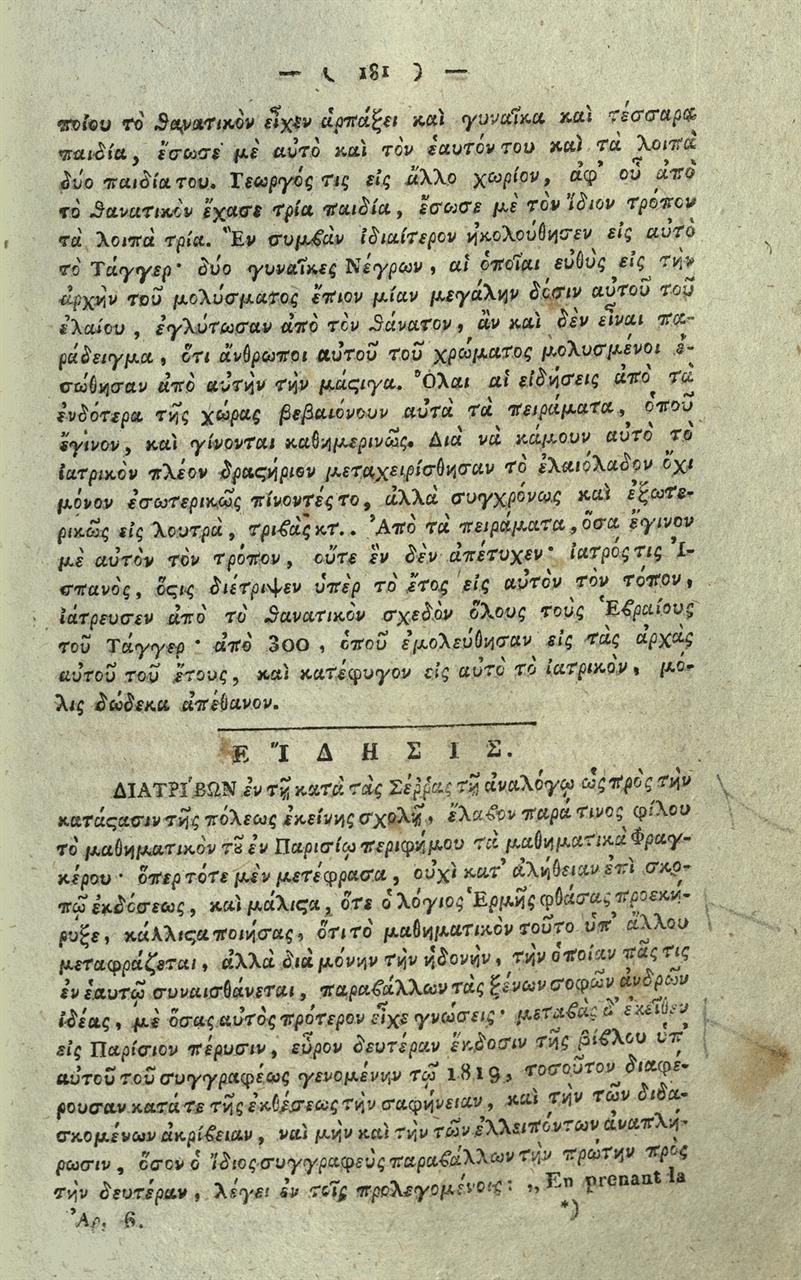 — ( 181 ) —
ποίου τὸ θανατικὸν εἶχεν ἁρπάξει καὶ γυναῖκα καὶ τέσσαρα
παιδία, ἔσωσε μὲ αὐτὸ καὶ τὸν ἑαυτόν του καὶ τὰ λοιπὰ
δύο παιδία του. Γεωργός τις εἰς ἄλλο χωρίον, ἀφ᾽ οὗ ἀπὸ
τὸ θανατικὸν ἔχασε τρία παιδία, ἔσωσε μὲ τὸν ἴδιον τρόπον
τὰ λοιπὰ τρία. Ἓν συμβὰν ἰδιαίτερον ἠκολούθησεν εἰς αὐτὸ
τὸ Τάγγερ· δύο γυναῖκες Νέγρων, αἱ ὁποῖαι εὐθὺς εἰς τὴν
ἀρχὴν τοῦ μολύσματος ἔπιον μίαν μεγάλην δόσιν αὐτοῦ τοῦ
ἐλαίου, ἐγλύτωσαν ἀπὸ τὸν θάνατον, ἂν καὶ δὲν εἶναι πα-
ράδειγμα, ὅτι ἄνθρωποι αὐτοῦ τοῦ χρώματος μολυσμένοι ἐ-
σώθησαν ἀπὸ αὐτὴν τὴν μάϛιγα. Ὅλαι αἱ εἰδήσεις ἀπὸ τὰ
ἐνδότερα τῆς χώρας βεβαιόνουν αὐτὰ τὰ πειράματα, ὁποῦ
ἔγινον, καὶ γίνονται καθημερινῶς. Διὰ νὰ κάμουν αὐτὸ τὸ
ἰατρικὸν πλέον δραϛήριον μεταχειρίσθησαν τὸ ἐλαιόλαδον ὄχι
μόνον ἐσωτερικῶς πίνοντές το, ἀλλὰ συγχρόνως καὶ ἐξωτε-
ρικῶς εἰς λουτρὰ, τριβὰς κτ.. Ἀπὸ τὰ πειράματα, ὅσα ἔγινον
μὲ αὐτὸν τὸν τρόπον, οὔτε ἓν δὲν ἀπέτυχεν· ἰατρός τις Ἰ-
σπανὸς, ὅϛις διέτριψεν ὑπὲρ τὸ ἔτος εἰς αὐτὸν τὸν τόπον,
ἰάτρευσεν ἀπὸ τὸ θανατικὸν σχεδὸν ὅλους τοὺς Ἑβραίους
τοῦ Τάγγερ· ἀπὸ 300, ὁποῦ ἐμολεύθησαν εἰς τὰς ἀρχὰς
αὐτοῦ τοῦ ἔτους, καὶ κατέφυγον εἰς αὐτὸ τὸ ἰατρικὸν, μό-
λις δώδεκα ἀπέθανον.
ΕἼΔΗΣΙΣ.
ΔΙΑΤΡΙ´ΒΩΝ ἐν τῇ κατὰ τὰς Σέῤῥας τῇ ἀναλόγῳ ὡς πρὸς τὴν
κατάϛασιν τῆς πόλεως ἐκείνης σχολῇ, ἔλαβον παρά τινος φίλου
τὸ μαθηματικὸν τοῦ ἐν Παρισίῳ περιφήμου τὰ μαθηματικὰ Φραγ-
κέρου· ὅπερ τότε μὲν μετέφρασα, οὐχὶ κατ᾽ ἀλήθειαν ἐπὶ σκο-
πῷ ἐκδόσεως, καὶ μάλιϛα, ὅτε ὁ λόγιος Ἑρμῆς φθάσας προεκή-
ρυξε, κάλλιϛα ποιήσας, ὅτι τὸ μαθηματικὸν τοῦτο ὑπ᾽ ἄλλου
μεταφράζεται, ἀλλὰ διὰ μόνην τὴν ἡδονὴν, τὴν ὁποίαν πᾶς τις
ἐν ἑαυτῷ συναισθάνεται, παραβάλλων τὰς ξένων σοφῶν ἀνδρῶν
ἰδέας, μὲ ὅσας αὐτὸς πρότερον εἶχε γνώσεις· μεταβὰς δ᾽ ἐκεῖθεν
εἰς Παρίσιον πέρυσιν, εὗρον δευτέραν ἔκδοσιν τῆς βίβλου ὑπ᾽
αὐτοῦ τοῦ συγγραφέως γενομένην τῷ 1819, τοσοῦτον διαφέ-
ρουσαν κατά τε τῆς ἐκθέσεως τὴν σαφήνειαν, καὶ τὴν τῶν διδα-
σκομένων ἀκρίβειαν, ναὶ μὴν καὶ τὴν τῶν ἐλλειπόντων ἀναπλή-
ρωσιν, ὅσον ὁ ἴδιος συγγραφεὺς παραβάλλων τὴν πρώτην πρὸς
τὴν δευτέραν, λέγει ἐν τοῖς προλεγομένοις: „En prenant la
Ἀρ. 6. *)